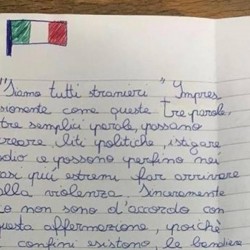 "Siamo tutti stranieri" Impres
sionante come queste tre parole,
tre semplici parole, possano
creare liti politiche, istigare
odio e possono perfino nei
casi più estremi far arrivare
alla violenza. Sinceramente
io non sono d'accordo con
questa affermazione, poichè
i confini esistono, le bandiere